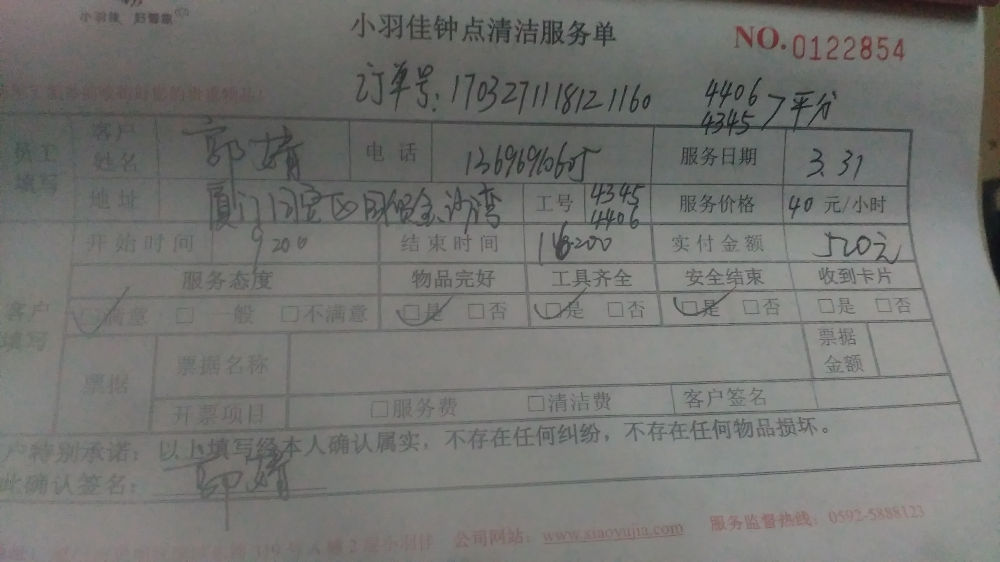 小羽佳 好管家
小羽佳钟点清洁服务单
NO. 0122854
订单号: 1703271118121160
4406
4345 > 平分
员工填写
客户姓名 郭婧 电话 13696910605 服务日期 3.31
地址 厦门同安区国贸金沙湾 工号 4345 4406 服务价格 40 元/小时
开始时间 9:00 结束时间 16:00 实付金额 520元
客户填写
服务态度 物品完好 工具齐全 安全结束 收到卡片
☑满意 □一般 □不满意 ☑是 □否 ☑是 □否 ☑是 □否 □是 □否
票据 票据名称 票据金额
开票项目 □服务费 □清洁费 客户签名
户特别承诺: 以上填写经本人确认属实，不存在任何纠纷，不存在任何物品损坏。
此确认签名: 郭婧
公司网站: www.xiaoyujia.com 服务监督热线: 0592-5888123